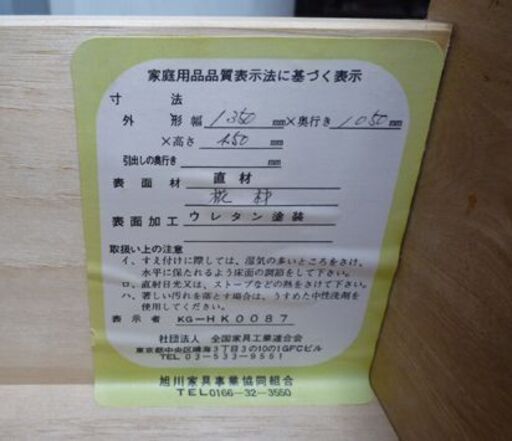 家庭用品品質表示法に基づく表示
寸法
外形 幅 1,350 mm×奥行き 1050 mm
×高さ 450 mm
引出しの奥行き mm
表面材 直材
材
表面加工 ウレタン塗装
取扱い上の注意
イ、すえ付けに際しては、湿気の多いところをさけ、
水平に保たれるよう床面の調節をして下さい。
ロ、直射日光又は、ストーブなどの熱をさけて下さい。
ハ、著しい汚れを落とす場合は、うすめた中性洗剤を
使用してください。
表示者 KG-HK0087
社団法人 全国家具工業連合会
東京都中央区晴海3丁目3の10の1GFCビル
TEL 03-533-9551
旭川家具事業協同組合
TEL0166-32-3550